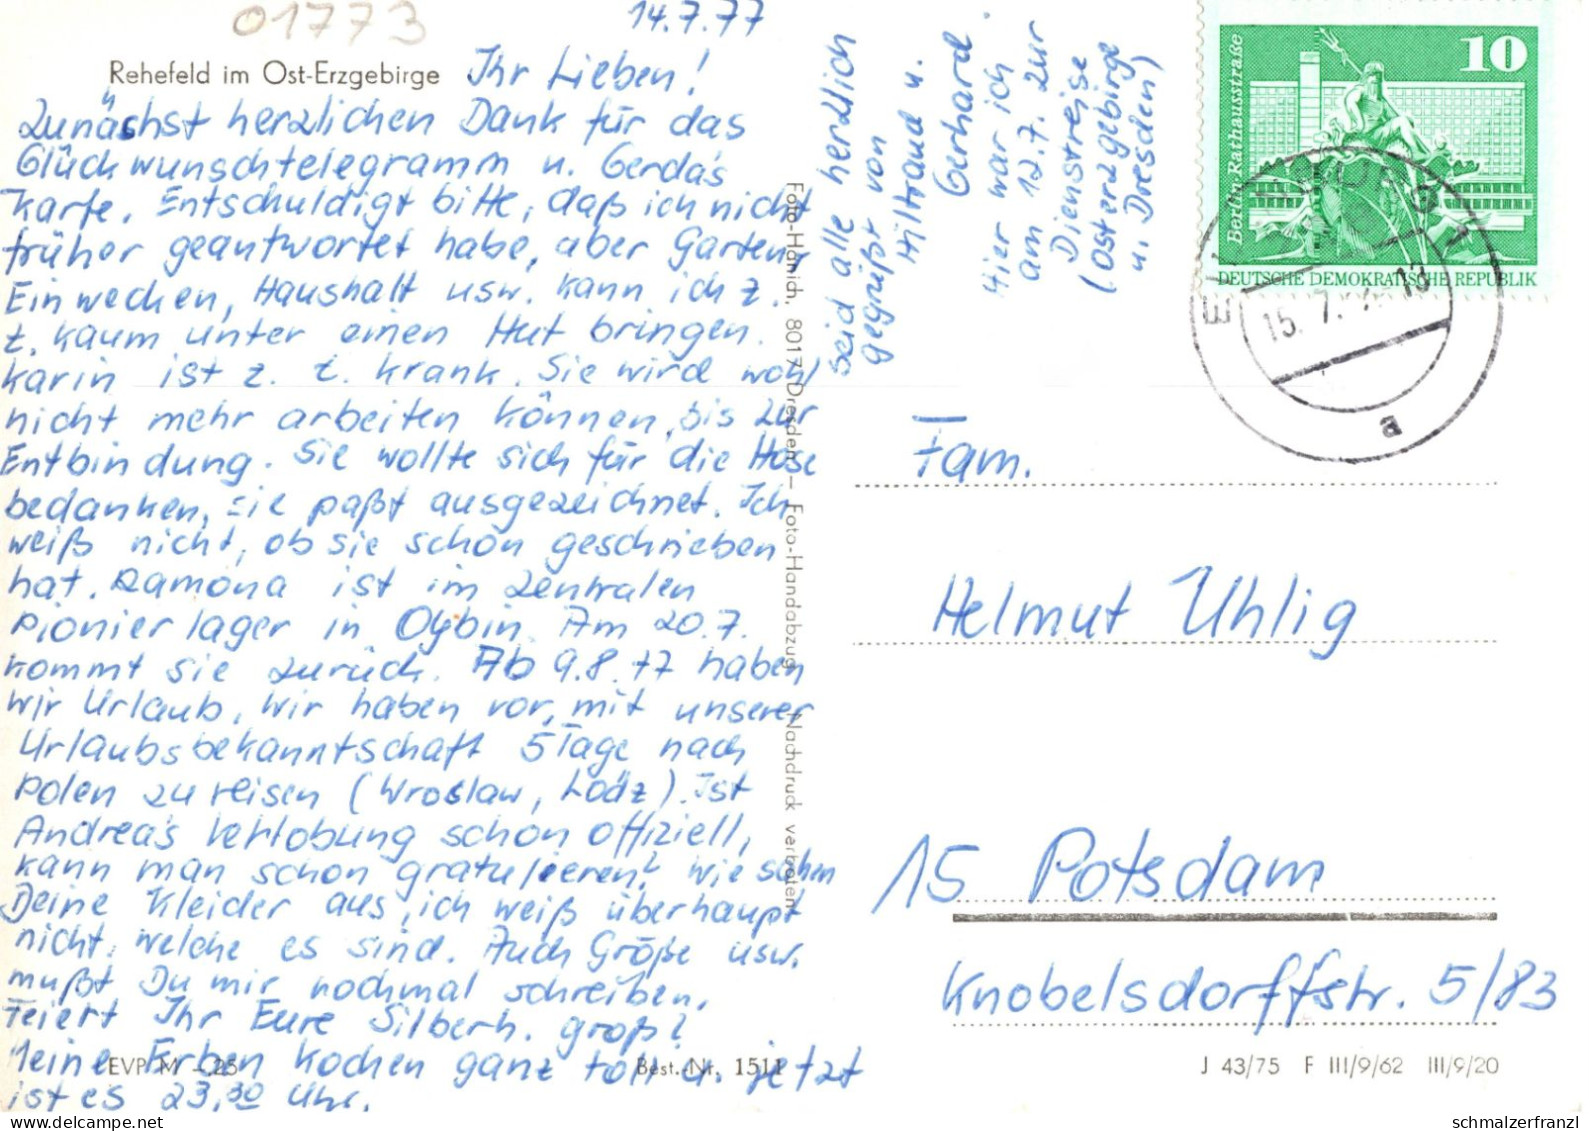 01773
14.7.77
Rehefeld im Ost-Erzgebirge
Ihr Lieben!
Zunächst herzlichen Dank für das
Glückwunschtelegramm u. Gerda's
Karte. Entschuldigt bitte, daß ich nicht
früher geantwortet habe, aber Garten,
Einwecken, Haushalt usw. kann ich z.
t. kaum unter einen Hut bringen.
Karin ist z. t. krank. Sie wird wohl
nicht mehr arbeiten können, bis zur
Entbindung. Sie wollte sich für die Hose
bedanken, sie paßt ausgezeichnet. Ich
weiß nicht, ob sie schon geschrieben
hat. Ramona ist im zentralen
Pionierlager in Oybin. Am 20.7.
kommt sie zurück. Ab 9.8.77 haben
wir Urlaub. Wir haben vor, mit unserer
Urlaubsbekanntschaft 5 Tage nach
Polen zu reisen (Wroslaw, Lodz). Ist
Andrea's Verlobung schon offiziell,
kann man schon gratulieren? Wie sehen
Deine Kleider aus, ich weiß überhaupt
nicht, welche es sind. Auch Größe usw.
mußt Du mir nochmal schreiben.
Feiert Ihr Eure Silberh. groß?
Meine Erben kochen ganz toll u. jetzt
ist es 23.30 Uhr.
Seid alle herzlich
gegrüßt von
Hiltraud u.
Gerhard.
Hier war ich
am 12.7. zur
Dienstreise
(Osterzgebirge
u. Dresden)
Foto-Hänich, 8017 Dresden — Foto-Handabzug Nachdruck verboten
EVP M -.25
Best.-Nr. 1511
10
Berlin, Rathausstraße
DEUTSCHE DEMOKRATISCHE REPUBLIK
15.7.
a
Fam.
Helmut Uhlig
15 Potsdam
Knobelsdorffstr. 5/83
J 43/75 F III/9/62 III/9/20
schmalzerfranzl